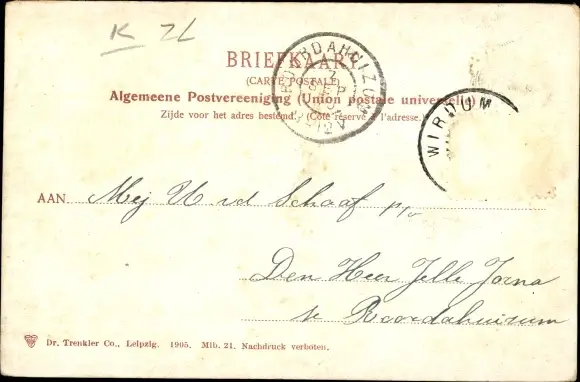 K ZL
BRIEFKAART
(CARTE POSTALE)
Algemeene Postvereeniging (Union postale universelle)
Zijde voor het adres bestemd. (Côté réservé à l'adresse.)
WIRDUM
AAN Mej U vd Schaaf p/a
Den Heer Jelle Jorna
te Roordahuizum
Dr. Trenkler Co., Leipzig. 1905. Mlb. 21. Nachdruck verboten.